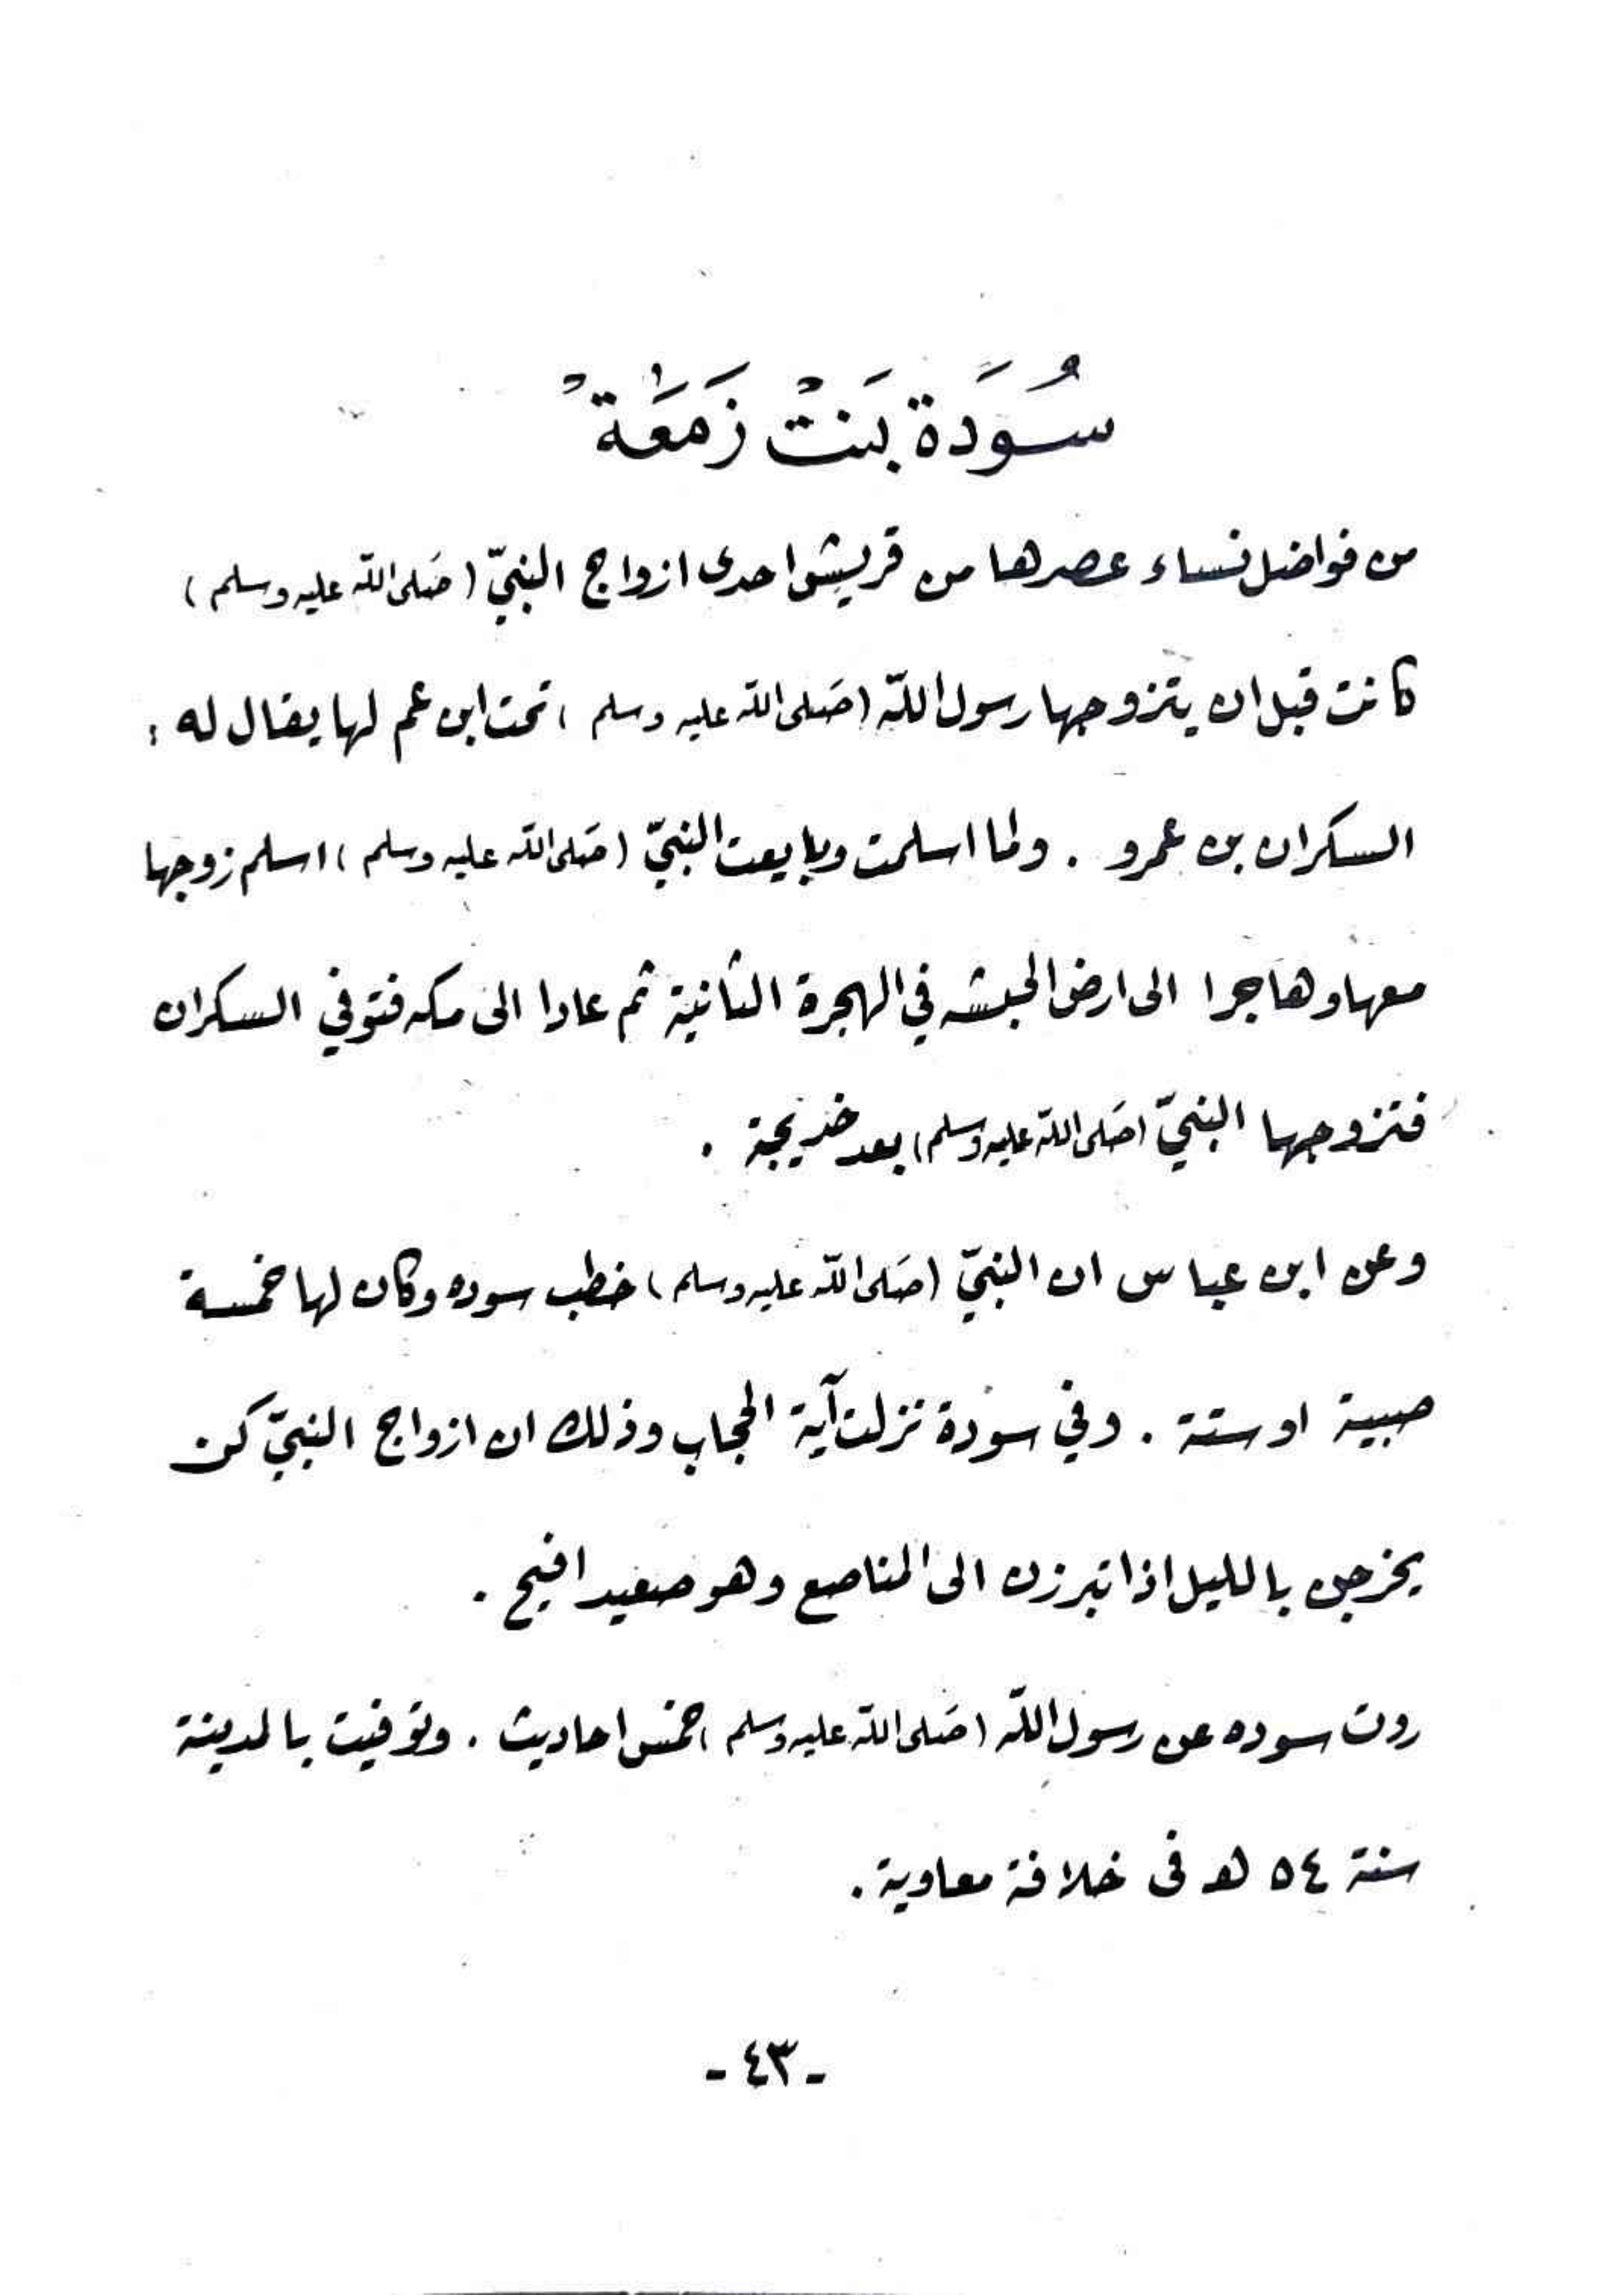 سُوَدَة بَنتْ زَمَعَة
من فواضل نساء عصرها من قريش احدى ازواج النبيّ (صَلى اللّه عليه وسلم)
كانت قبل ان يتزوجها رسول اللّه (صَلى اللّه عليه وسلم) تحت ابن عم لها يقال له :
السكران بن عمرو . ولما اسلمت وبايعت النبيّ (صَلى اللّه عليه وسلم) اسلم زوجها
معها وهاجرا الى ارض الحبشه في الهجرة الثانية ثم عادا الى مكه فتوفي السكران
فتزوجها النبيّ (صَلى اللّه عليه وسلم) بعد خديجة .
وعن ابن عباس ان النبيّ (صَلى اللّه عليه وسلم) خطب سوده وكان لها خمسة
صبية او ستة . وفي سودة نزلت آية الحجاب وذلك ان ازواج النبيّ كن
يخرجن بالليل اذا تبرزن الى المناصع وهو صعيد افيح .
روت سوده عن رسول اللّه (صَلى اللّه عليه وسلم) خمس احاديث . وتوفيت بالمدينة
سنة ٥٤ هـ فى خلافة معاوية .
- ٤٣ -